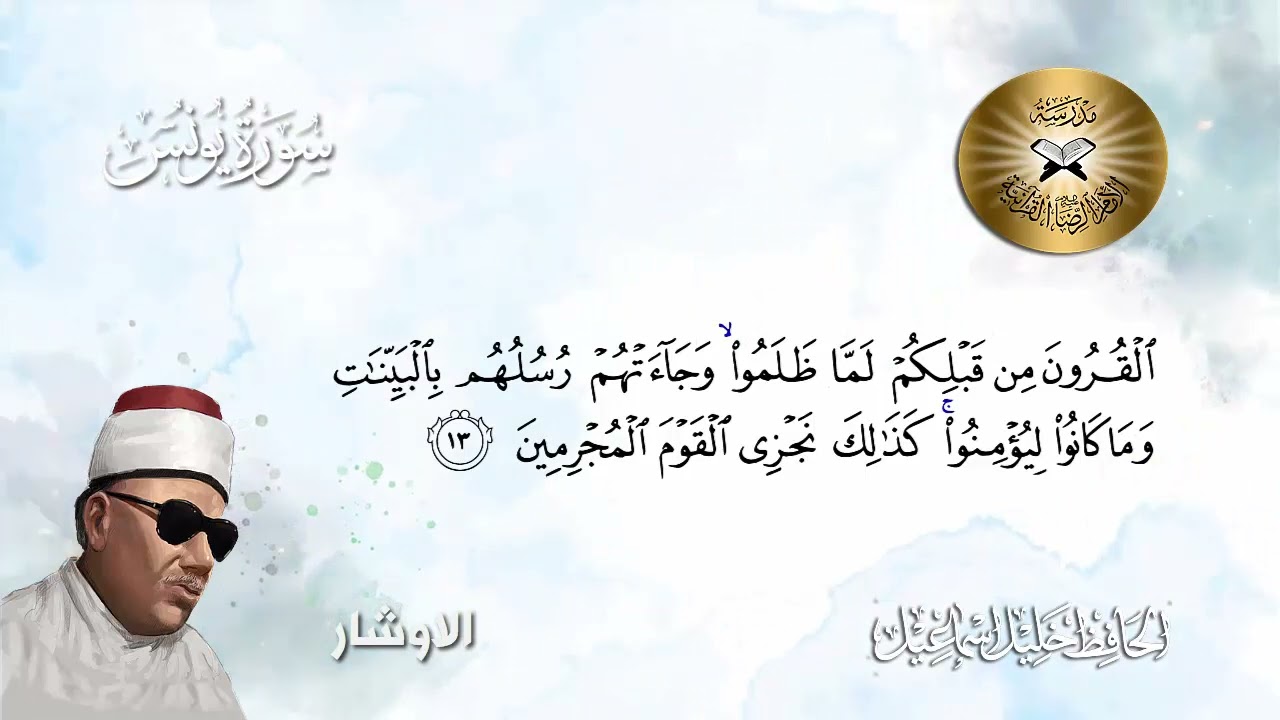 سُورَةُ يُونُس
مَدْرَسَةُ
الإمَامِ الرِّضَا القُرْآنِيَّة
ٱلْقُرُونَ مِن قَبْلِكُمْ لَمَّا ظَلَمُوا۟ ۙ وَجَآءَتْهُمْ رُسُلُهُم بِٱلْبَيِّنَـٰتِ
وَمَا كَانُوا۟ لِيُؤْمِنُوا۟ ۚ كَذَٰلِكَ نَجْزِى ٱلْقَوْمَ ٱلْمُجْرِمِينَ ١٣
الحَافِظ خَلِيل إسْمَاعِيل
الاوشار